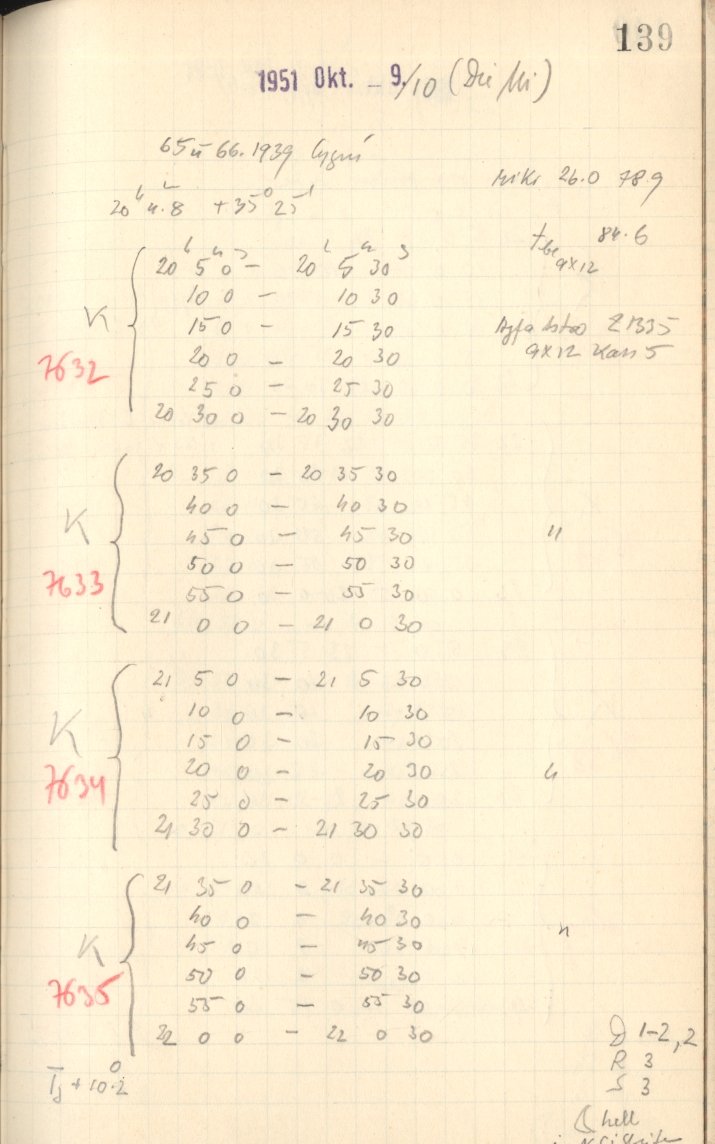 139
1951 Okt. – 9./10 (Die/Mi)
65 u 66.1939 Cygni
20ʰ 4ᵐ.8 +35° 25'
Miki 26.0 78.9
84.6
9x12
Agfa Astro Z 1335
9x12 Kass 5
K
7632
20ʰ 5ᵐ 0ˢ – 20ʰ 5ᵐ 30ˢ
10 0 – 10 30
15 0 – 15 30
20 0 – 20 30
25 0 – 25 30
20 30 0 – 20 30 30
K
7633
20 35 0 – 20 35 30
40 0 – 40 30
45 0 – 45 30
50 0 – 50 30
55 0 – 55 30
21 0 0 – 21 0 30
"
K
7634
21 5 0 – 21 5 30
10 0 – 10 30
15 0 – 15 30
20 0 – 20 30
25 0 – 25 30
21 30 0 – 21 30 30
"
K
7635
21 35 0 – 21 35 30
40 0 – 40 30
45 0 – 45 30
50 0 – 50 30
55 0 – 55 30
22 0 0 – 22 0 30
"
+10°.2
D 1-2, 2
R 3
S 3
☾ hell